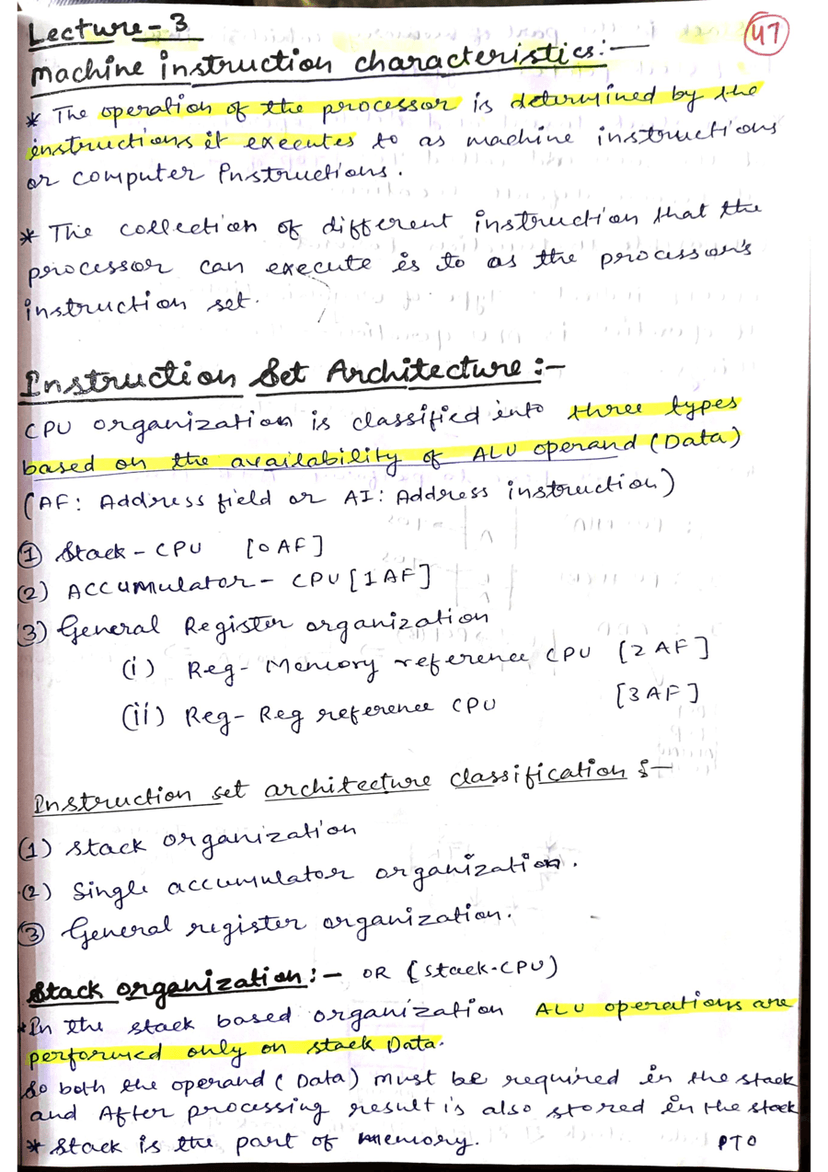 Lecture-3
47
Machine instruction characteristics:-
* The operation of the processor is determined by the
instructions it executes to as machine instructions
or computer Instructions.
* The collection of different instruction that the
processor can execute is to as the processor's
instruction set.
Instruction Set Architecture:-
CPU organization is classified into three types
based on the availability of ALU operand (Data)
(AF: Address field or AI: Address instruction)
① Stack-CPU [0AF]
(2) Accumulator-CPU [1AF]
(3) General Register organization
(i) Reg-Memory reference CPU [2AF]
(ii) Reg-Reg reference CPU [3AF]
Instruction set architecture classification :-
(1) Stack organization
(2) Single accumulator organization.
③ General register organization.
Stack organization:- OR (Stack-CPU)
* In the stack based organization ALU operations are
performed only on stack Data.
So both the operand (Data) must be required in the stack
and After processing result is also stored in the stack
* Stack is the part of memory.
PTO